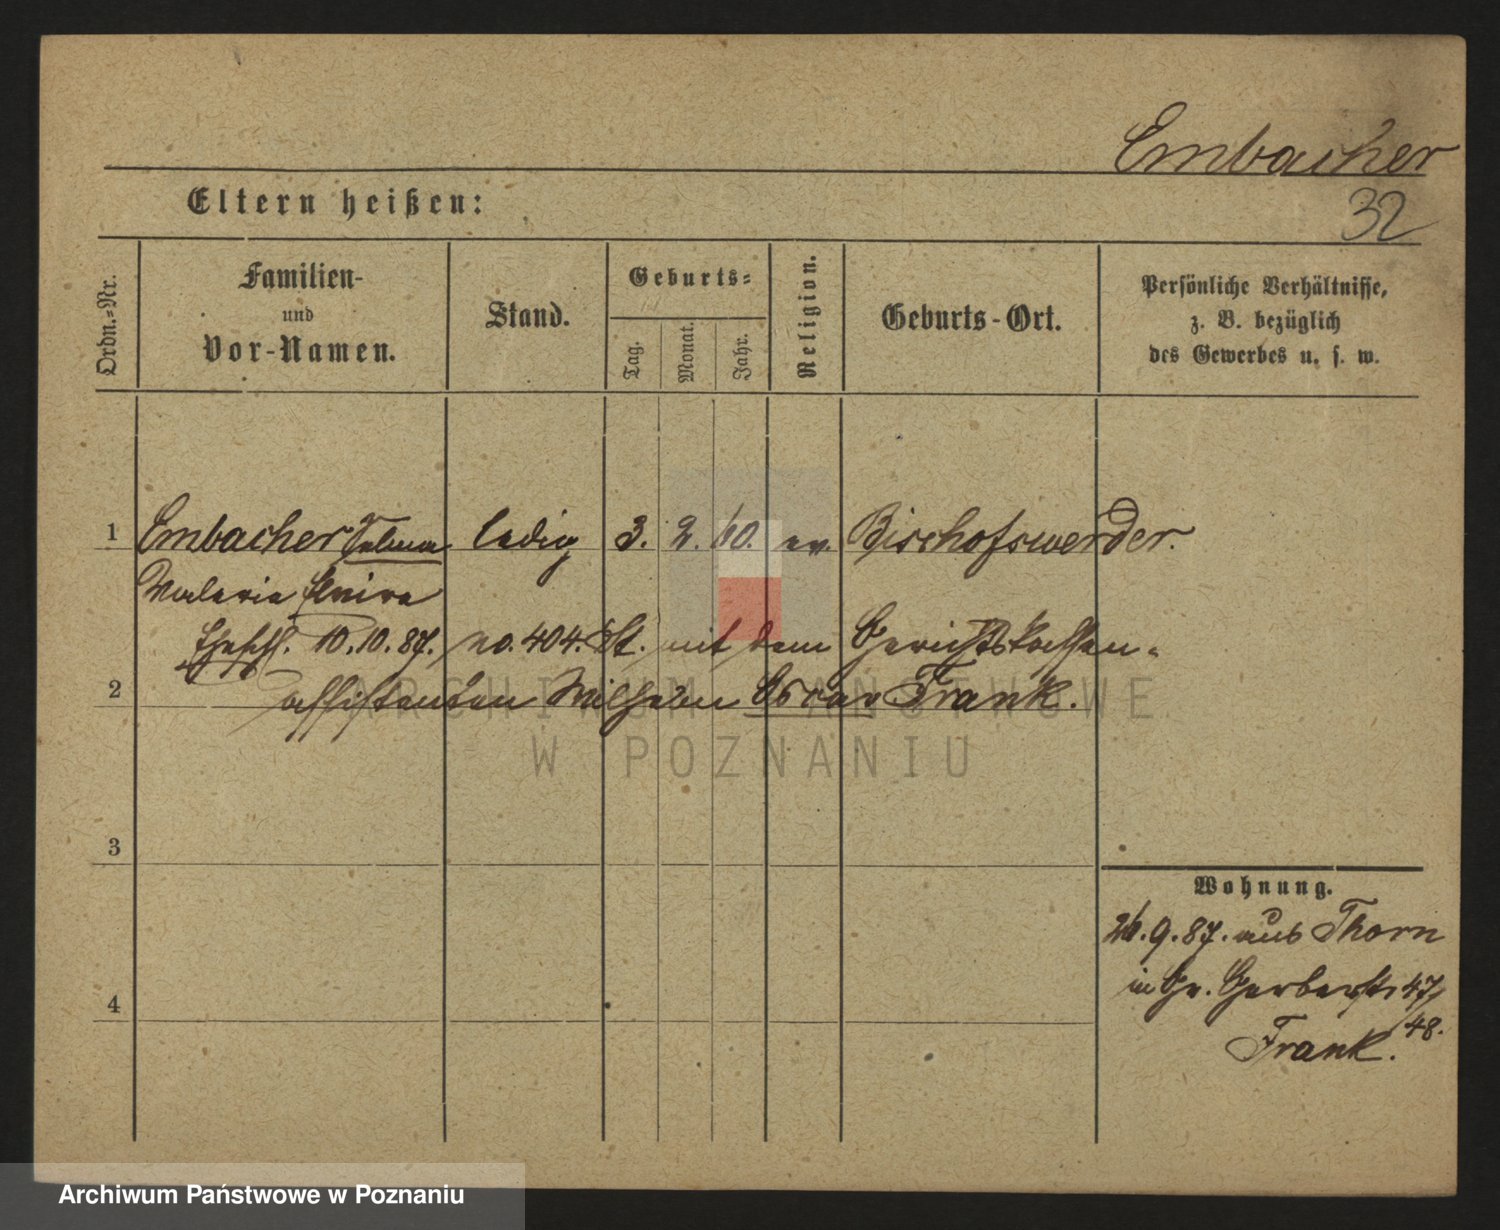 Embacher
32
Eltern heißen:
Ordn.-Nr.
Familien-
und
Vor-Namen.
Stand.
Geburts-
Tag.
Monat.
Jahr.
Religion.
Geburts-Ort.
Persönliche Verhältnisse,
z. B. bezüglich
des Gewerbes u. s. w.
1 Embacher Selma ledig 3. 2. 60. ev. Bischofswerder.
Valerie Elvire
Eheschl. 10.10.87. no. 404. St. mit dem Gerichtskassen-
2 assistenten Wilhelm Oscar Frank.
ARCHIWUM PAŃSTWOWE
W POZNANIU
3
Wohnung.
26.9.87. aus Thorn
in Gr. Gerberstr 47/
48.
Frank.
4
Archiwum Państwowe w Poznaniu